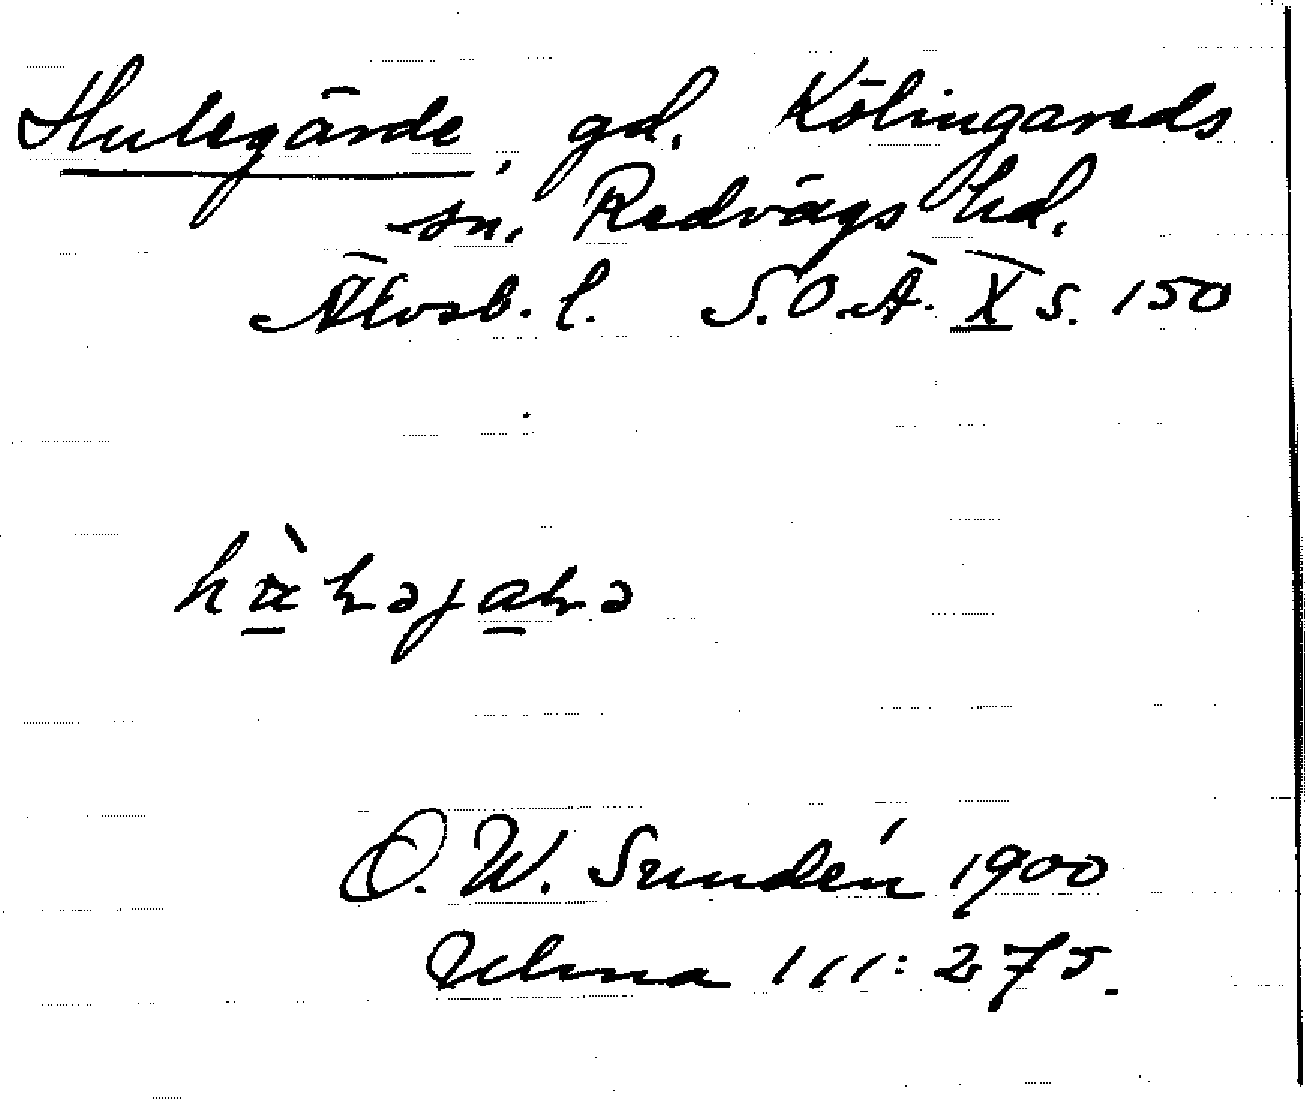 Hulegärde, gd. Kölingareds
sn. Redvägs hd.
Älvsb. l. S.O.Ä. X s. 150
O. W. Sundén 1900
Ulma 111:275.